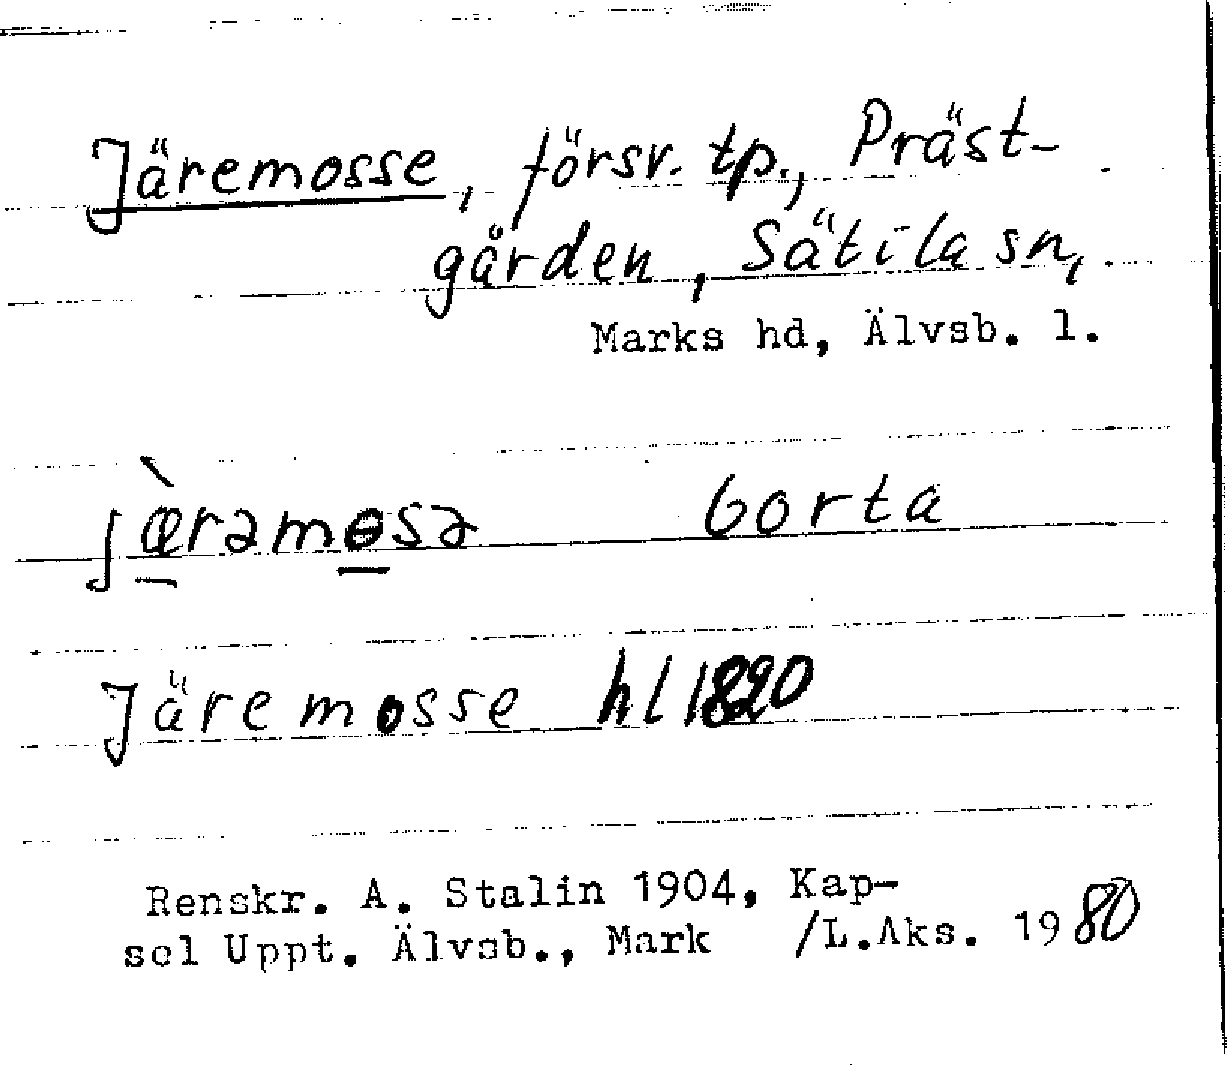 Järemosse, försv. tp., Präst-
gården, Sätila sn,
Marks hd, Älvsb. l.
jæ̀ramɵsa borta
Järemosse hl 1820
Renskr. A. Stalin 1904, Kap-
sel Uppt. Älvsb., Mark /L.Aks. 1980